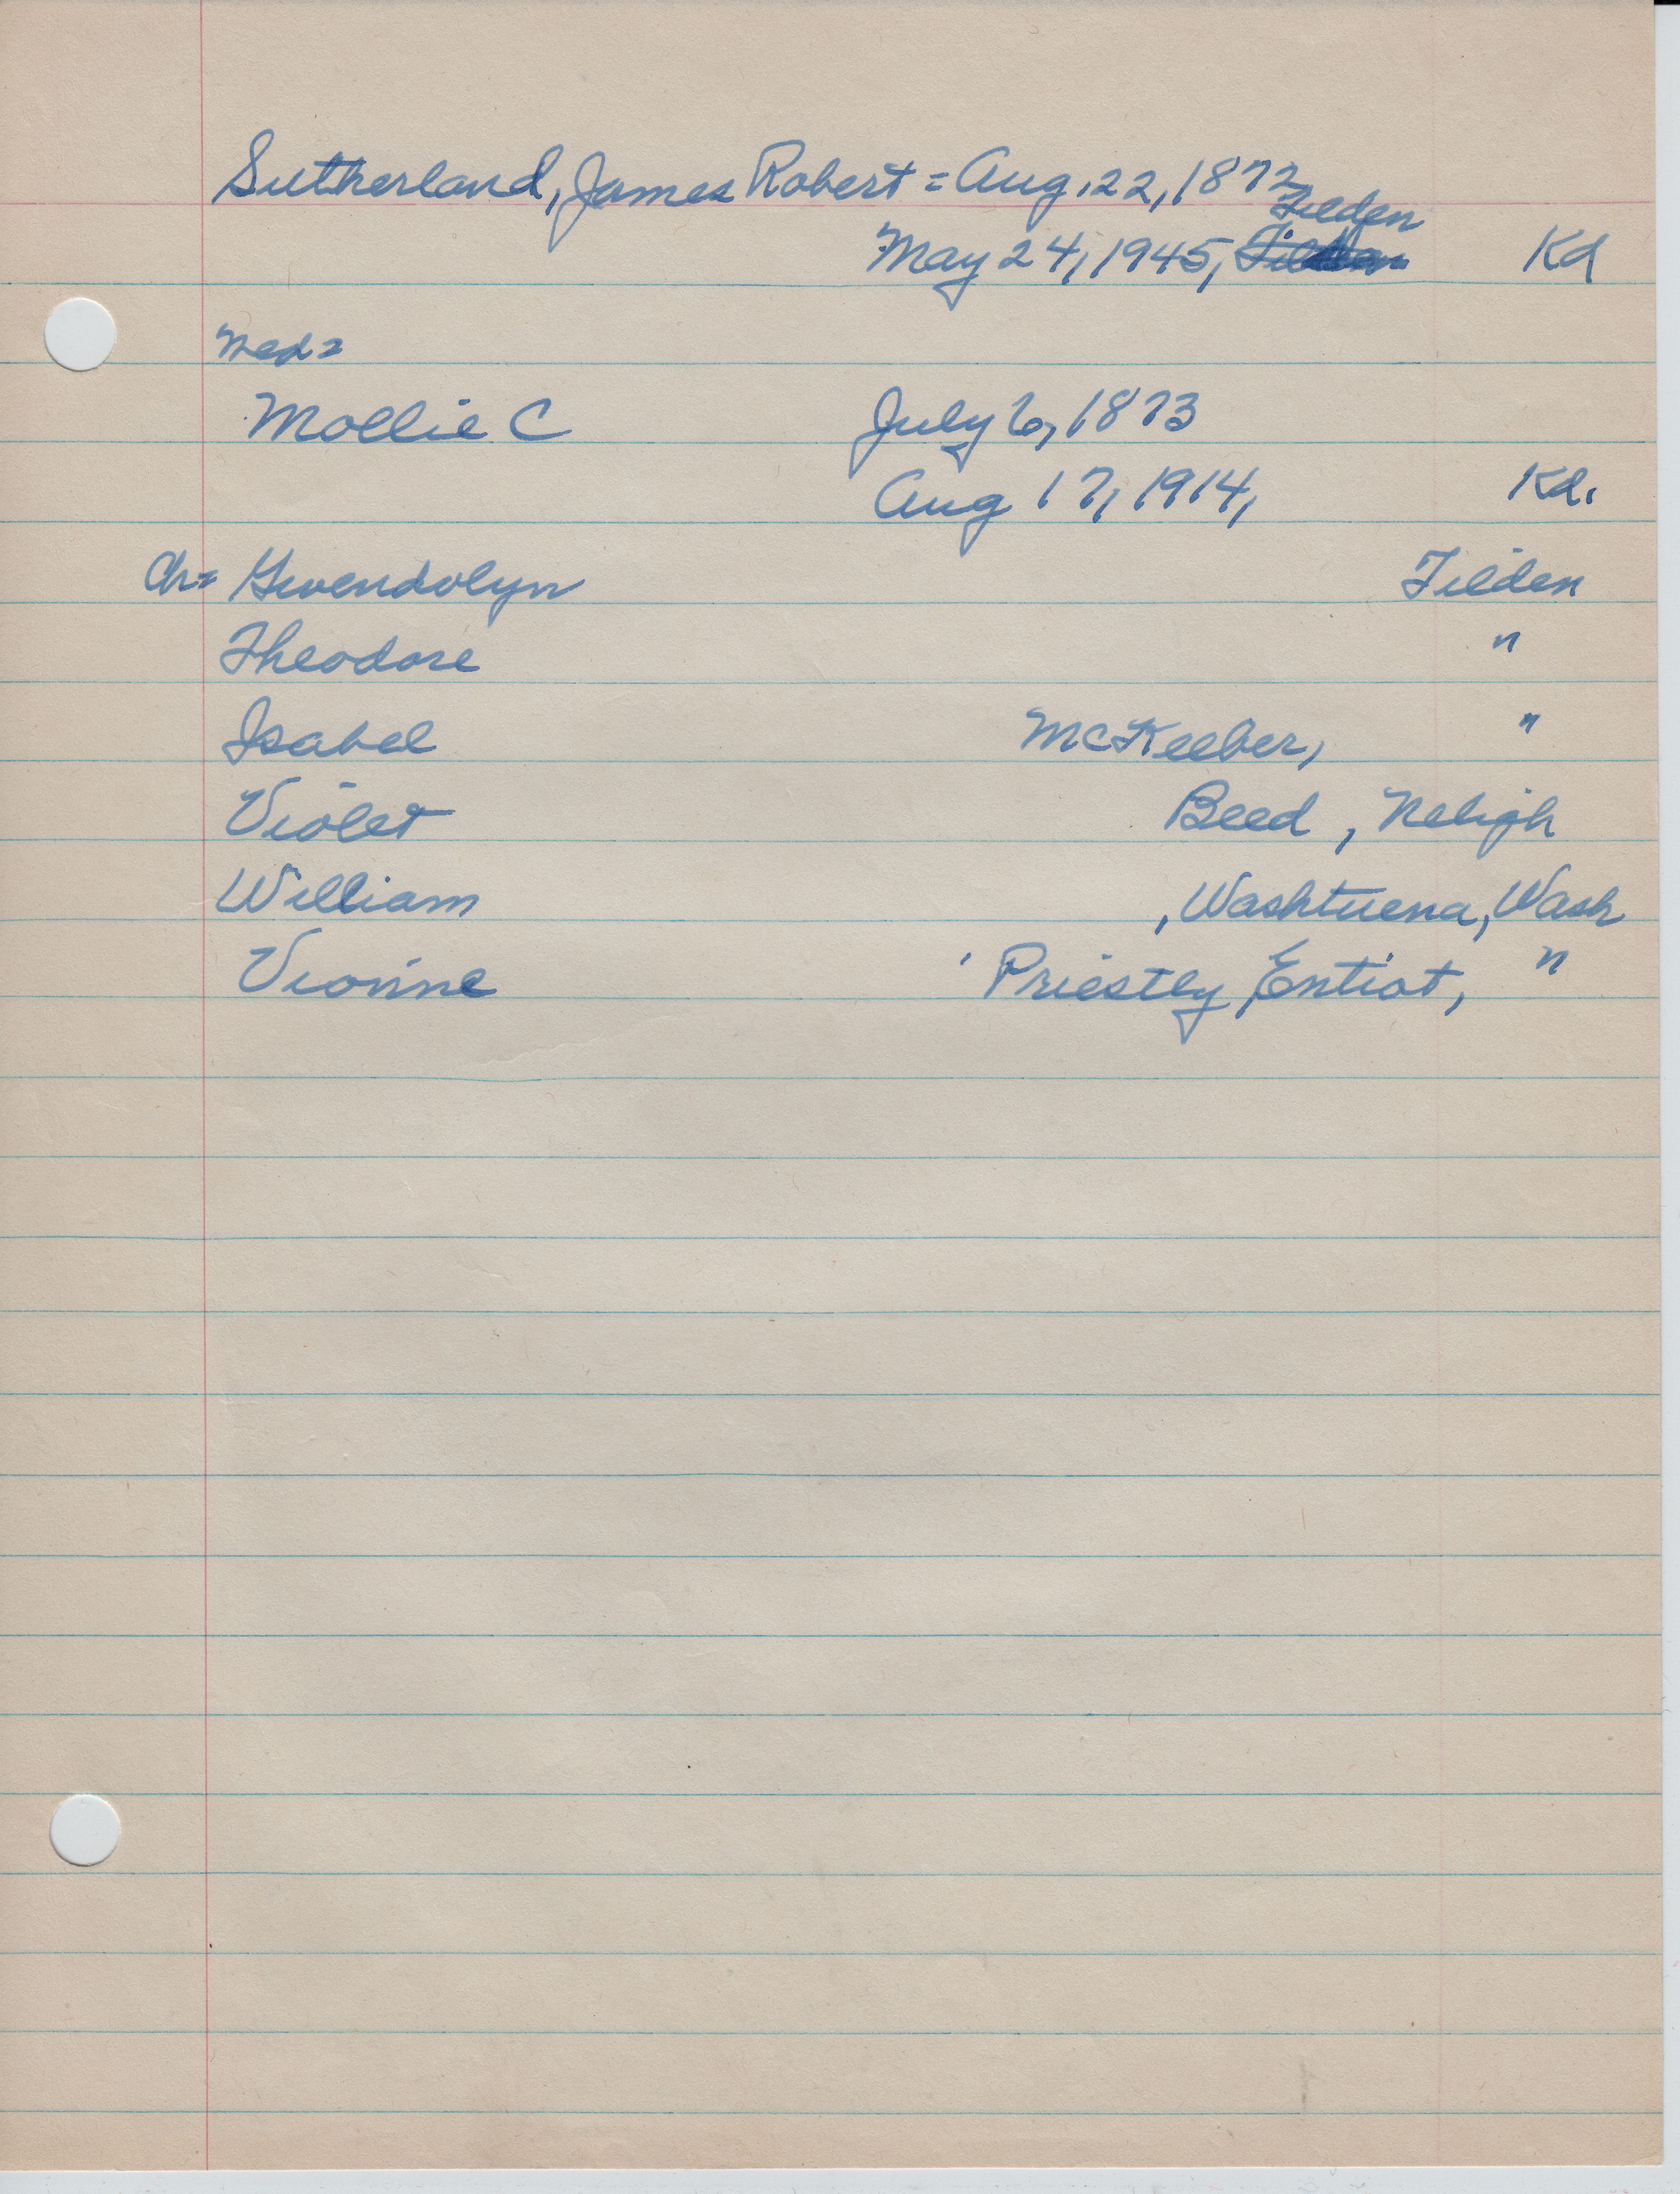 Sutherland, James Robert = Aug. 22, 1872
Tilden
May 24, 1945, Kd
Med =
Mollie C July 6, 1873
Aug 17, 1914, Kd.
Ch = Gwendolyn Tilden
Theodore "
Isabel McKeeber, "
Violet Beed, Neligh
William , Washtucna, Wash
Vionne Priestley, Entiat, "